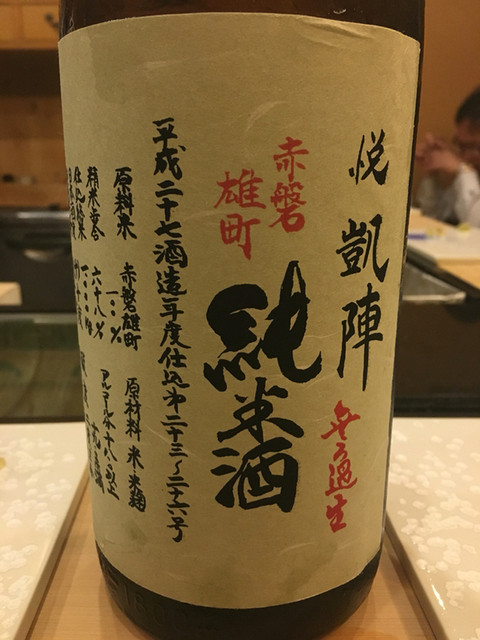 悦凱陣
無ろ過生
赤磐
雄町
純米酒
平成二十七酒造年度仕込第二十三〜二十六号
原料米 赤磐雄町
一〇〇%
原材料 米・米麹
精米歩合 六十八%
アルコール分十八度以上